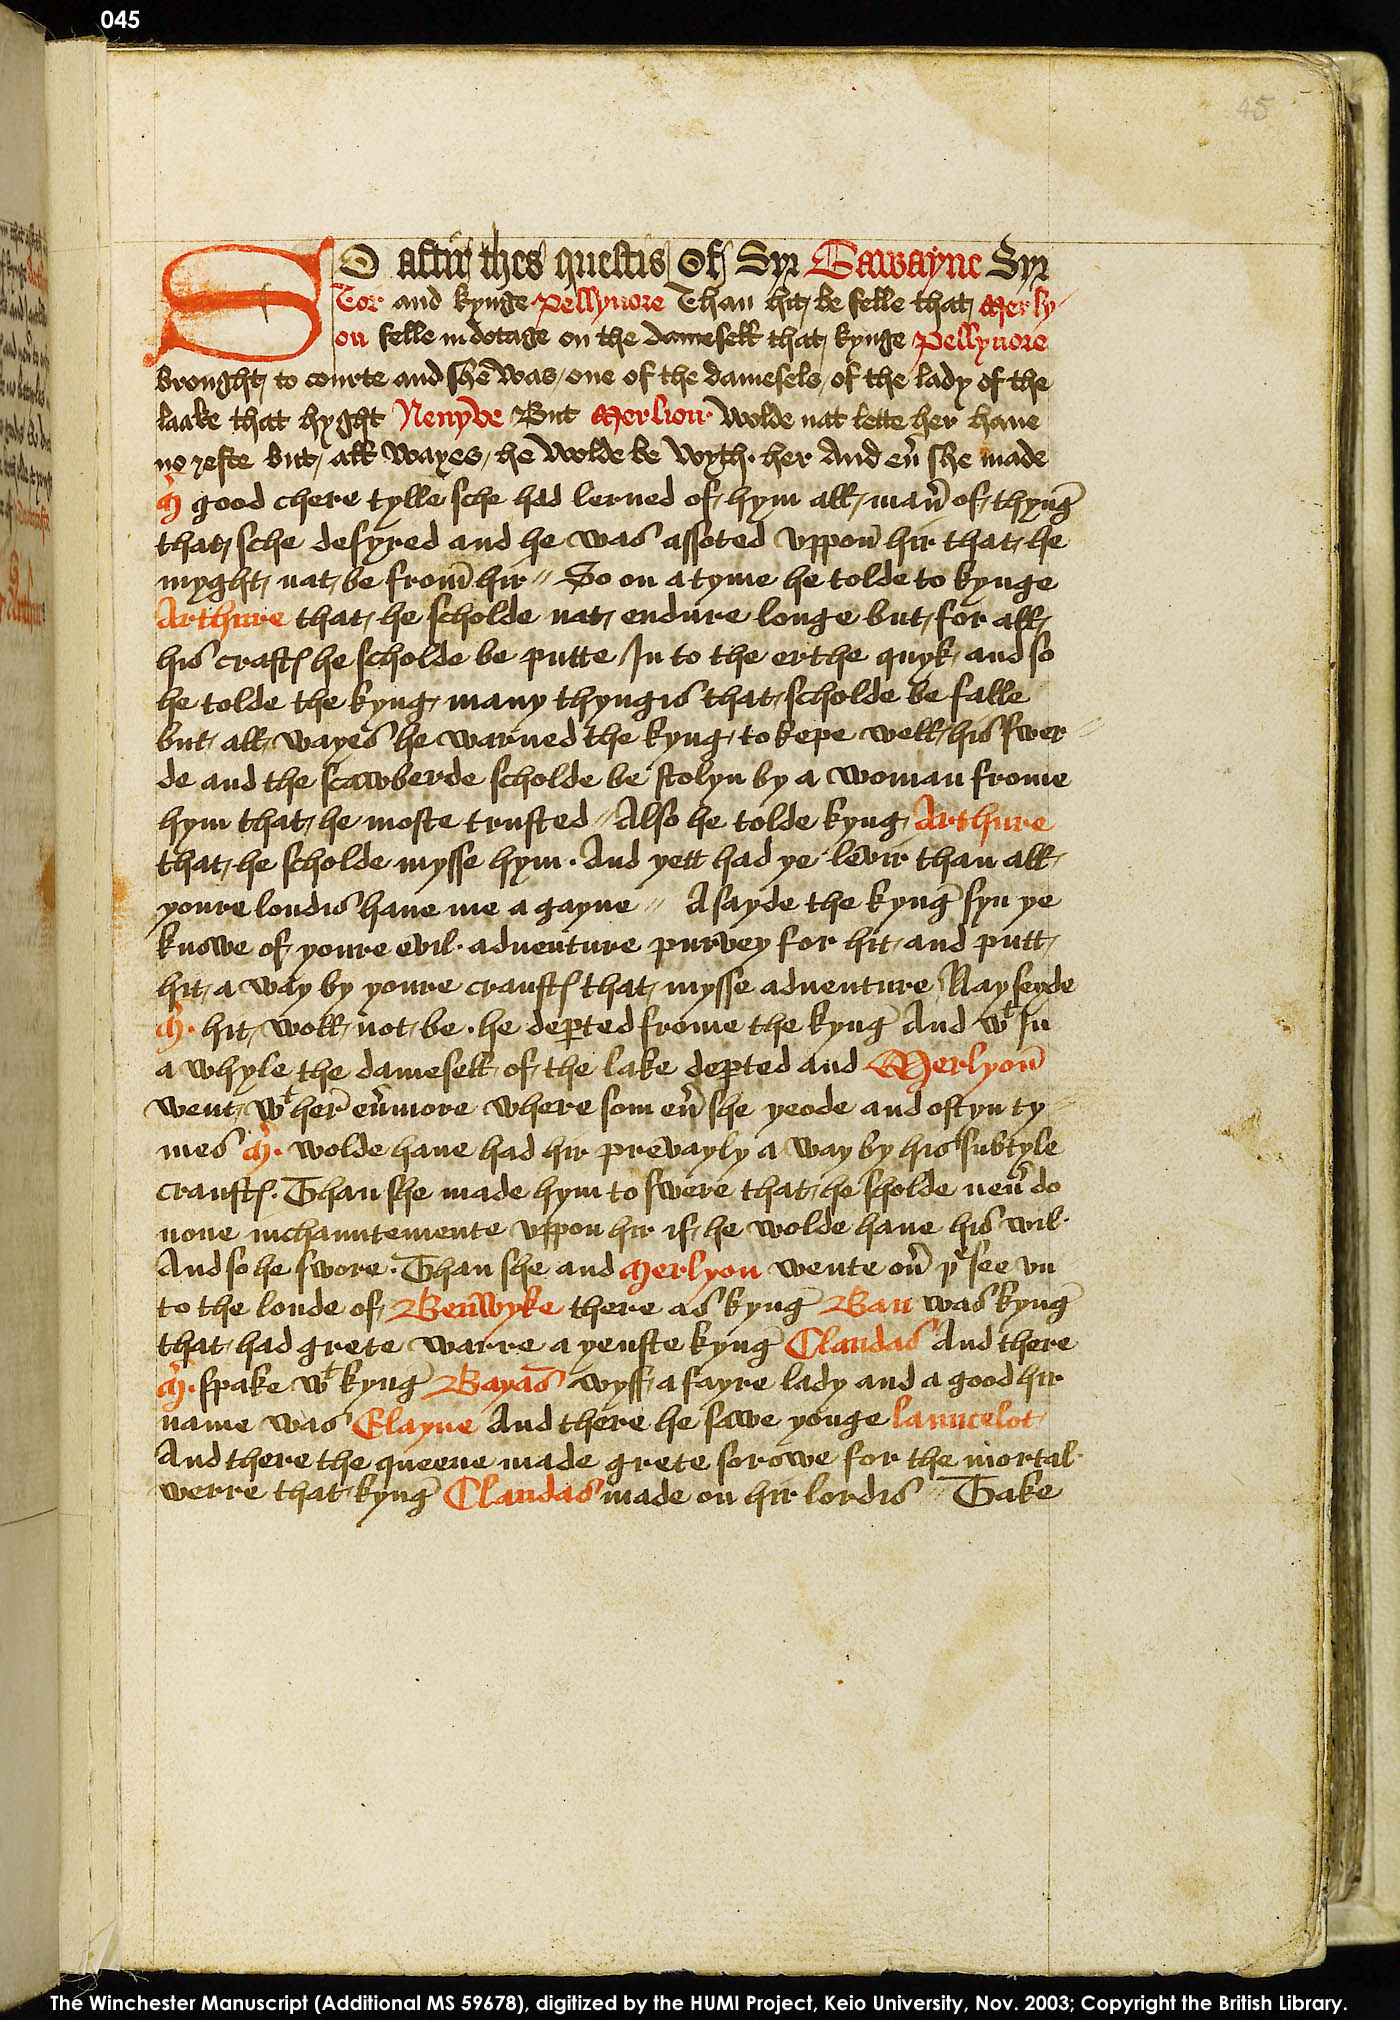 045
45
SO aftir thes questis Of Syr Gawayne Syr
Tor and kynge Pellynore Than hit be felle that Merly
on felle in dotage on the damesell that kynge Pellynore
brought to courte and she was one of the damesels of the lady of the
laake that hyght Nenyve But Merlion wolde nat lette her haue
no reste but all wayes he wolde be wyth her And eũ she made
M̃ good chere tylle sche had lerned of hym all mañ of thyng̃
that sche desyred and he was assoted vppoñ hir that he
myght nat be from̃ hir // So on a tyme he tolde to kynge
Arthure that he scholde nat endure longe but for all
his craftꝭ he scholde be putte In to the erthe quyk and so
he tolde the kyng many thyngis that scholde be falle
but all wayes he warned the kyng to kepe well his swer
de and the scawberde scholde be stolyn by a woman frome
hym that he moste trusted // Also he tolde kyng Arthure
that he scholde mysse hym · And yett had ye levir than all
youre londis haue me a gayne // A sayde the kyng̃ syn ye
knowe of youre evil aduenture purvey for hit and putt
hit a way by youre crauftꝭ that mysse aduenture Nay seyde
M̃ · hit woll not be · he dep̱ted frome the kyng̃ And wᵗ In
a whyle the damesell of the lake dep̱ted and Merlyoñ
went wᵗ her̃ eũmore where som eũ she yeode and oftyn ty
mes M̃ · wolde haue had hir prevayly a way by his subtyle
crauftꝭ · Than she made hym to swere that he sholde neũ do
none inchauntemente vppon hir if he wolde haue his wil
And so he swore · Than she and Merlyon wente oũ yᵉ see vn
to the londe of Benwyke there as kyng̃ Ban was kyng̃
that had grete warre a yenste kyng̃ Claudas And there
M̃ · spake wᵗ kyng̃ Bayas̃ wyff a fayre lady and a good hir
name was Elayne And there he sawe yonge launcelot
And there the queene made grete sorowe for the mortal
werre that kyng̃ Claudas made on hir lordis // Take
The Winchester Manuscript (Additional MS 59678), digitized by the HUMI Project, Keio University, Nov. 2003; Copyright the British Library.